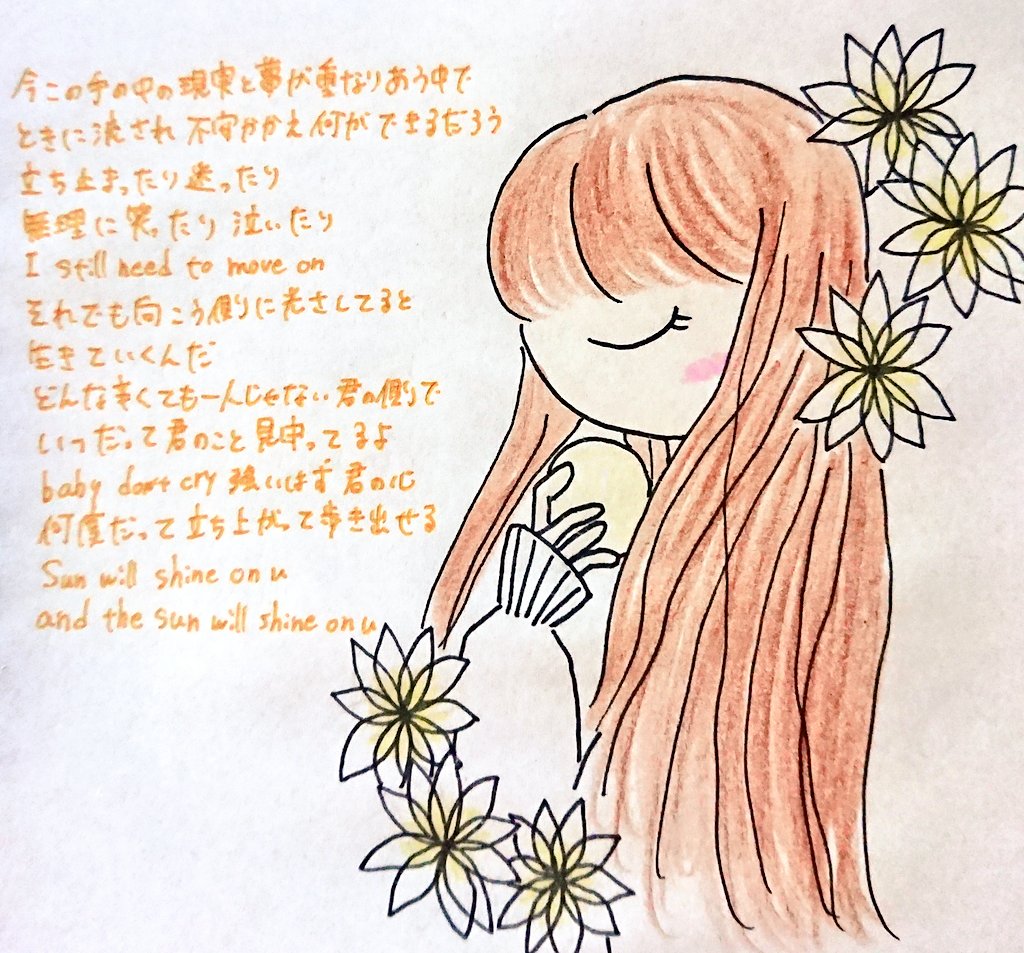 今この手の中の現実と夢が重なりあう中で
ときに流され 不安かかえ 何ができるだろう
立ち止まったり迷ったり
無理に笑ったり 泣いたり
I still need to move on
それでも向こう側に光さしてると
生きていくんだ
どんな辛くても一人じゃない 君の側で
いつだって君のこと見守ってるよ
baby don't cry 強いはず 君の心
何度だって立ち上がって歩き出せる
Sun will shine on u
and the sun will shine on u